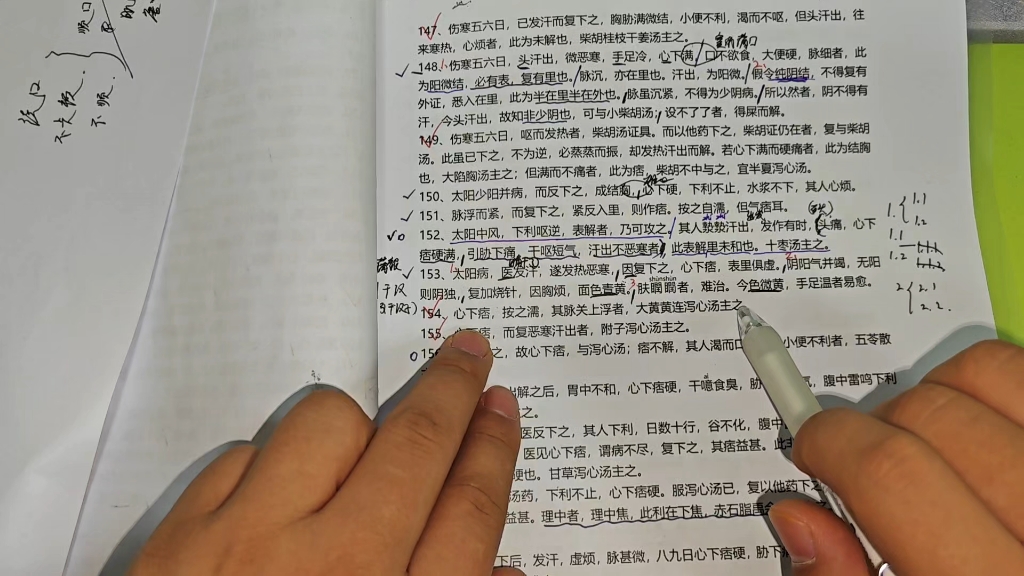 147、伤寒五六日，已发汗而复下之，胸胁满微结，小便不利，渴而不呕，但头汗出，往
来寒热，心烦者，此为未解也，柴胡桂枝干姜汤主之。
148、伤寒五六日，头汗出，微恶寒，手足冷，心下满，口不欲食，大便硬，脉细者，此
为阳微结，必有表，复有里也。脉沉，亦在里也。汗出，为阳微。假令纯阴结，不得复有
外证，悉入在里，此为半在里半在外也。脉虽沉紧，不得为少阴病，所以然者，阴不得有
汗，今头汗出，故知非少阴也，可与小柴胡汤；设不了了者，得屎而解。
149、伤寒五六日，呕而发热者，柴胡汤证具。而以他药下之，柴胡证仍在者，复与柴胡
汤。此虽已下之，不为逆，必蒸蒸而振，却发热汗出而解。若心下满而硬痛者，此为结胸
也，大陷胸汤主之；但满而不痛者，此为痞，柴胡不中与之，宜半夏泻心汤。
150、太阳少阳并病，而反下之，成结胸，心下硬，下利不止，水浆不下，其人心烦。
151、脉浮而紧，而复下之，紧反入里，则作痞。按之自濡，但气痞耳。
152、太阳中风，下利呕逆，表解者，乃可攻之。其人漐漐汗出，发作有时，头痛，心下
痞硬满，引胁下痛，干呕短气，汗出不恶寒者，此表解里未和也，十枣汤主之。
153、太阳病，医发汗，遂发热恶寒，因复下之，心下痞，表里俱虚，阴阳气并竭，无阳
则阴独，复加烧针，因胸烦，面色青黄，肤瞤者，难治。今色微黄，手足温者易愈。
154、心下痞，按之濡，其脉关上浮者，大黄黄连泻心汤主之
155、心下痞，而复恶寒汗出者，附子泻心汤主之。
之，故心下痞，与泻心汤；痞不解，其人渴而口
小便不利者，五苓散
出解之后，胃中不和，心下痞硬，干噫食臭，胁
气，腹中雷鸣下利
之。
医反下之，其人下利，日数十行，谷不化，腹中
医见心下痞，谓病不尽，复下之，其痞益甚。此
硬也，甘草泻心汤主之。
汤药，下利不止，心下痞硬。服泻心汤已，复以他药下之
益甚。理中者，理中焦，此利在下焦，赤石脂
下后，发汗，虚烦，脉甚微，八九日心下痞硬，胁下